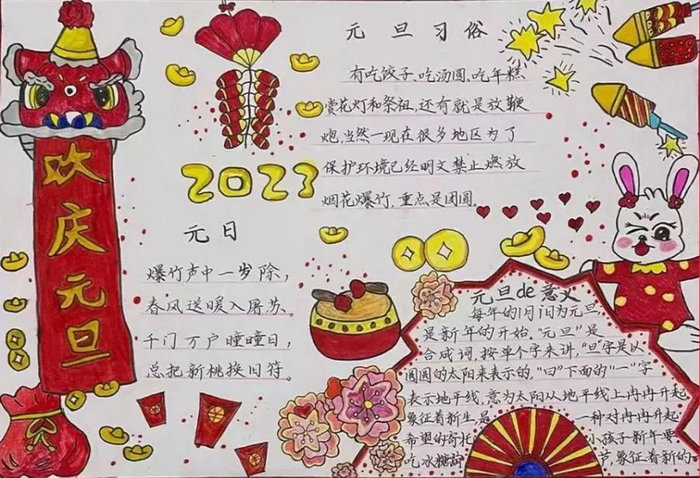 欢庆元旦
2023
元旦习俗
有吃饺子,吃汤圆,吃年糕
赏花灯和祭祖,还有就是放鞭
炮,当然一现在很多地区为了
保护环境已经明文禁止燃放
烟花爆竹,重点是团圆。
元日
爆竹声中一岁除,
春风送暖入屠苏。
千门万户瞳瞳日,
总把新桃换旧符。
元旦de意义
每年的1月1日为元旦
是新年的开始。"元旦"是
合成词,按单个字来讲,"旦"字是以
圆圆的太阳来表示的,"日"下面的"一"字
表示地平线,意为太阳从地平线上冉冉升起
象征着新生,是 一种对冉冉升起
希望的寄 小孩子新年要
吃冰糖 节,象征着新的